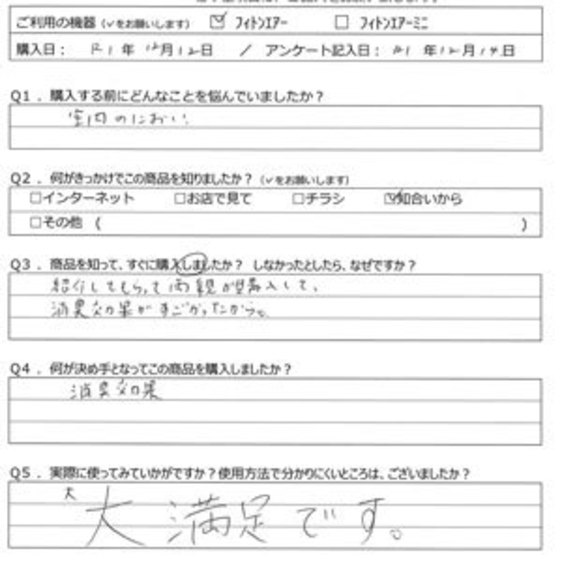 ご利用の機器（✓をお願いします） ☑ フィトンエアー □ フィトンエアーミニ
購入日： R1年12月12日 ／ アンケート記入日：R1年12月19日
Q1．購入する前にどんなことを悩んでいましたか？
室内のにおい
Q2．何がきっかけでこの商品を知りましたか？（✓をお願いします）
□インターネット □お店で見て □チラシ ☑知合いから
□その他（ ）
Q3．商品を知って、すぐに購入しましたか？ しなかったとしたら、なぜですか？
紹介してもらって両親が購入して、
消臭効果がすごかったから。
Q4．何が決め手となってこの商品を購入しましたか？
消臭効果
Q5．実際に使ってみていかがですか？使用方法で分かりにくいところは、ございましたか？
大
大満足です。